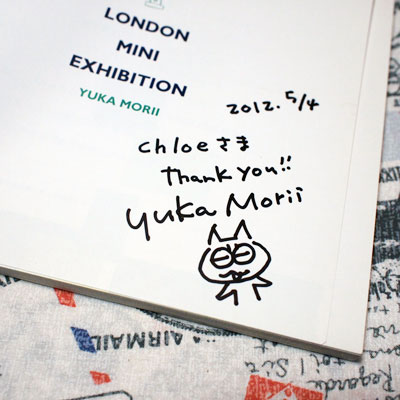 LONDON
MINI
EXHIBITION
YUKA MORII
2012. 5/4
chloeさま
Thank you!!
yuka Morii
AIRMAIL
toi! Si t
Regarde